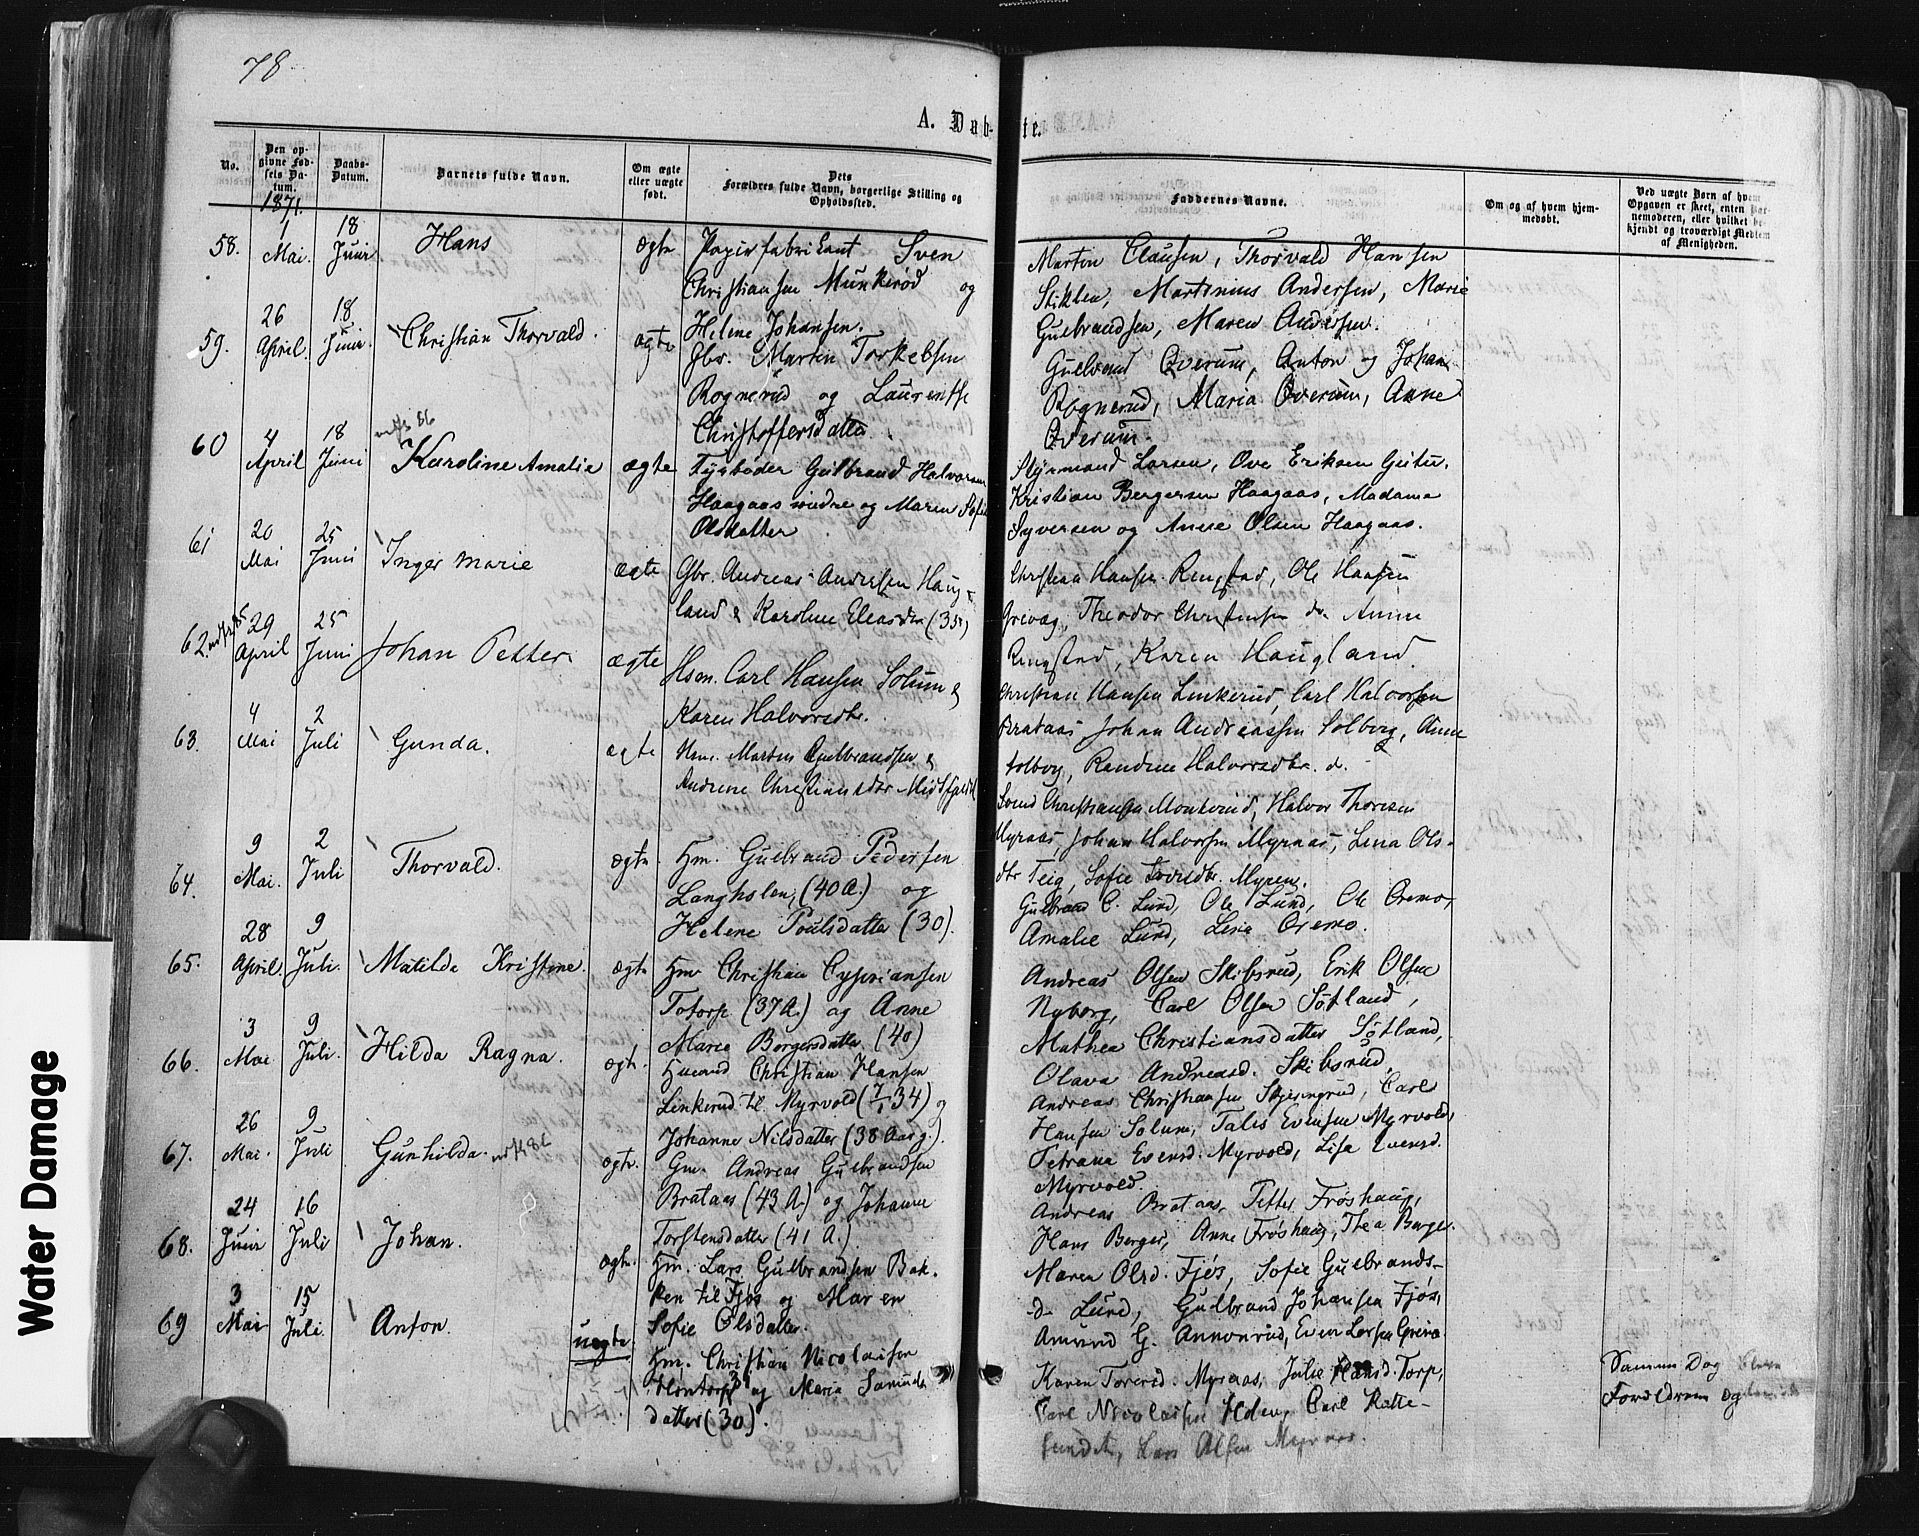 78
A. Døbte.
No.
Den op-
givne Fød-
sels Da-
tum.
Daabs-
Datum.
Barnets fulde Navn.
Om ægte
eller uægte
født.
Dets
Forældres fulde Navn, borgerlige Stilling og
Opholdssted.
Faddernes Navne.
Om og af hvem hjem-
medøbt.
Ved uægte Børn af hvem
Opgaven er skeet, enten Bar-
nemoderen, eller hvilket be-
kjendt og troværdigt Medlem
af Menigheden.
1871.
58. 1 Mai 18 Juni Hans ægte
Papirfabrikant Sven
Christiansen Munkerød og
Helene Johansen.
Martin Clausen, Thorvald Hansen
Stiklen, Martinius Andersen, Marie
Gulbrandsen, Maren Andersen.
59. 26 April 18 Juni Christian Thorvald. ægte
Gbr. Martin Torkelsen
Rognerud og Laurentse
Christoffersdatter.
Gulbrand Qverum, Anton og Johan
Rognerud, Maria Qverum, Anne
Qverum.
60 4 April 18 Juni Karoline Amalie ægte
Gulbrand Halvorsen
Haagaas nndre og Maren Sofie
Olsdatter
Styrmand Larsen, Ove Eriksen
Kristian Bergersen Haagaas, Madama
Syversen og Anne Olsen Haagaas.
61 20 Mai 25 Juni Inger Marie ægte
Gbr. Andreas Andersen Haug-
land & Karoline Eleasdr (35)
Christian Hansen Ringstad, Ole Hansen
Grevag, Theodor Christensen do Anne
Ringstad, Karen Haugland.
62. 29 April 25 Juni Johan Petter ægte
Hsm. Carl Hansen Solum &
Karen Halvorsdtr.
Christian Hansen Linkerud, Carl Halvorsen
Brataas Johan Andreassen Solberg, Anne
Solberg, Randine Halvorsdtr. d.
63. 4 Mai 2 Juli Gunda. ægte
Martin Gulbrandsen &
Andrine Christiansdtr
Svend Christiansen Monkerud, Halvor Thoresen
Myraas Johan Halvorsen Myraas, Lena Ols-
dtr Teig, Sofie Myren.
64. 9 Mai. 2 Juli Thorvald. ægte.
Hm. Gulbrand Pedersen
Langhslen, (40 A.) og
Helene Poulsdatter (30).
Gulbrand C. Lund, Ole Lund, Ole Oremo,
Amalie Lund, Lina Oremo.
65. 28 April. 9 Juli. Matilda Kristine. ægte
Hm Christian Cypriansen
Totorp (37 A.) og Anne
Marie Borgersdatter (40)
Andreas Olsen Skibsrud, Erik Olsen
Nyborg, Carl Olsen Søtland,
Mathea Christiansdatter Søtland,
Olava Andreasd. Skibsrud.
66. 3 Mai 9 Juli. Hilda Ragna. ægte.
Christian Hansen
Linkerud til Myrvold (7/1 34) og
Johanne Nilsdatter (38 Aar g.).
Andreas Christiansen Skjeringrud, Carl
Hansen Solum, Talis Evensen Myrvold,
Petrana Evensd. Myrvold, Lisa Evensd.
Myrvold.
67. 26 Mai. 9 Juli Gunhilda. ægte.
Gm. Andreas Gulbrandsen
Brataas (43 A.) og Johanne
Torstensdatter (41 A.)
Andreas Brataas, Petter Frøshaug,
Hans Berger, Anne Frøshaug, Thea Berger.
68. 24 Juni 16 Juli Johan. ægte.
Hm. Lars Gulbrandsen Bak-
ken til Fjøs og Maren
Sofie Olsdatter.
Maren Olsd. Fjøs, Sofie Gulbrands-
d. Lund, Gulbrand Johansen Fjøs,
Amund G. Annonrud, Even Larsen Greivo
69 3 Mai 15 Juli. Anton. uægte.
Hm. Christian Nicolaisen
og Maria Samuels
datter (30).
Karen Torersd. Myraas, Julie Hansd. Torp,
Carl Nicolaisen Holen, Carl Katte-
sundet, Lars Olsen Myraas.
Samme Dag
Forældrene og
Water Damage